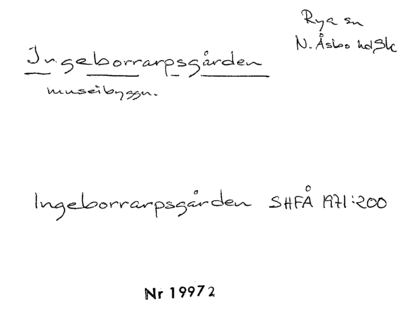 Rya sn
N. Åsbo hd, Sk
Ingeborrarpsgården
museibyggn.
Ingeborrarpsgården SHFÅ 1971:200
Nr 19972